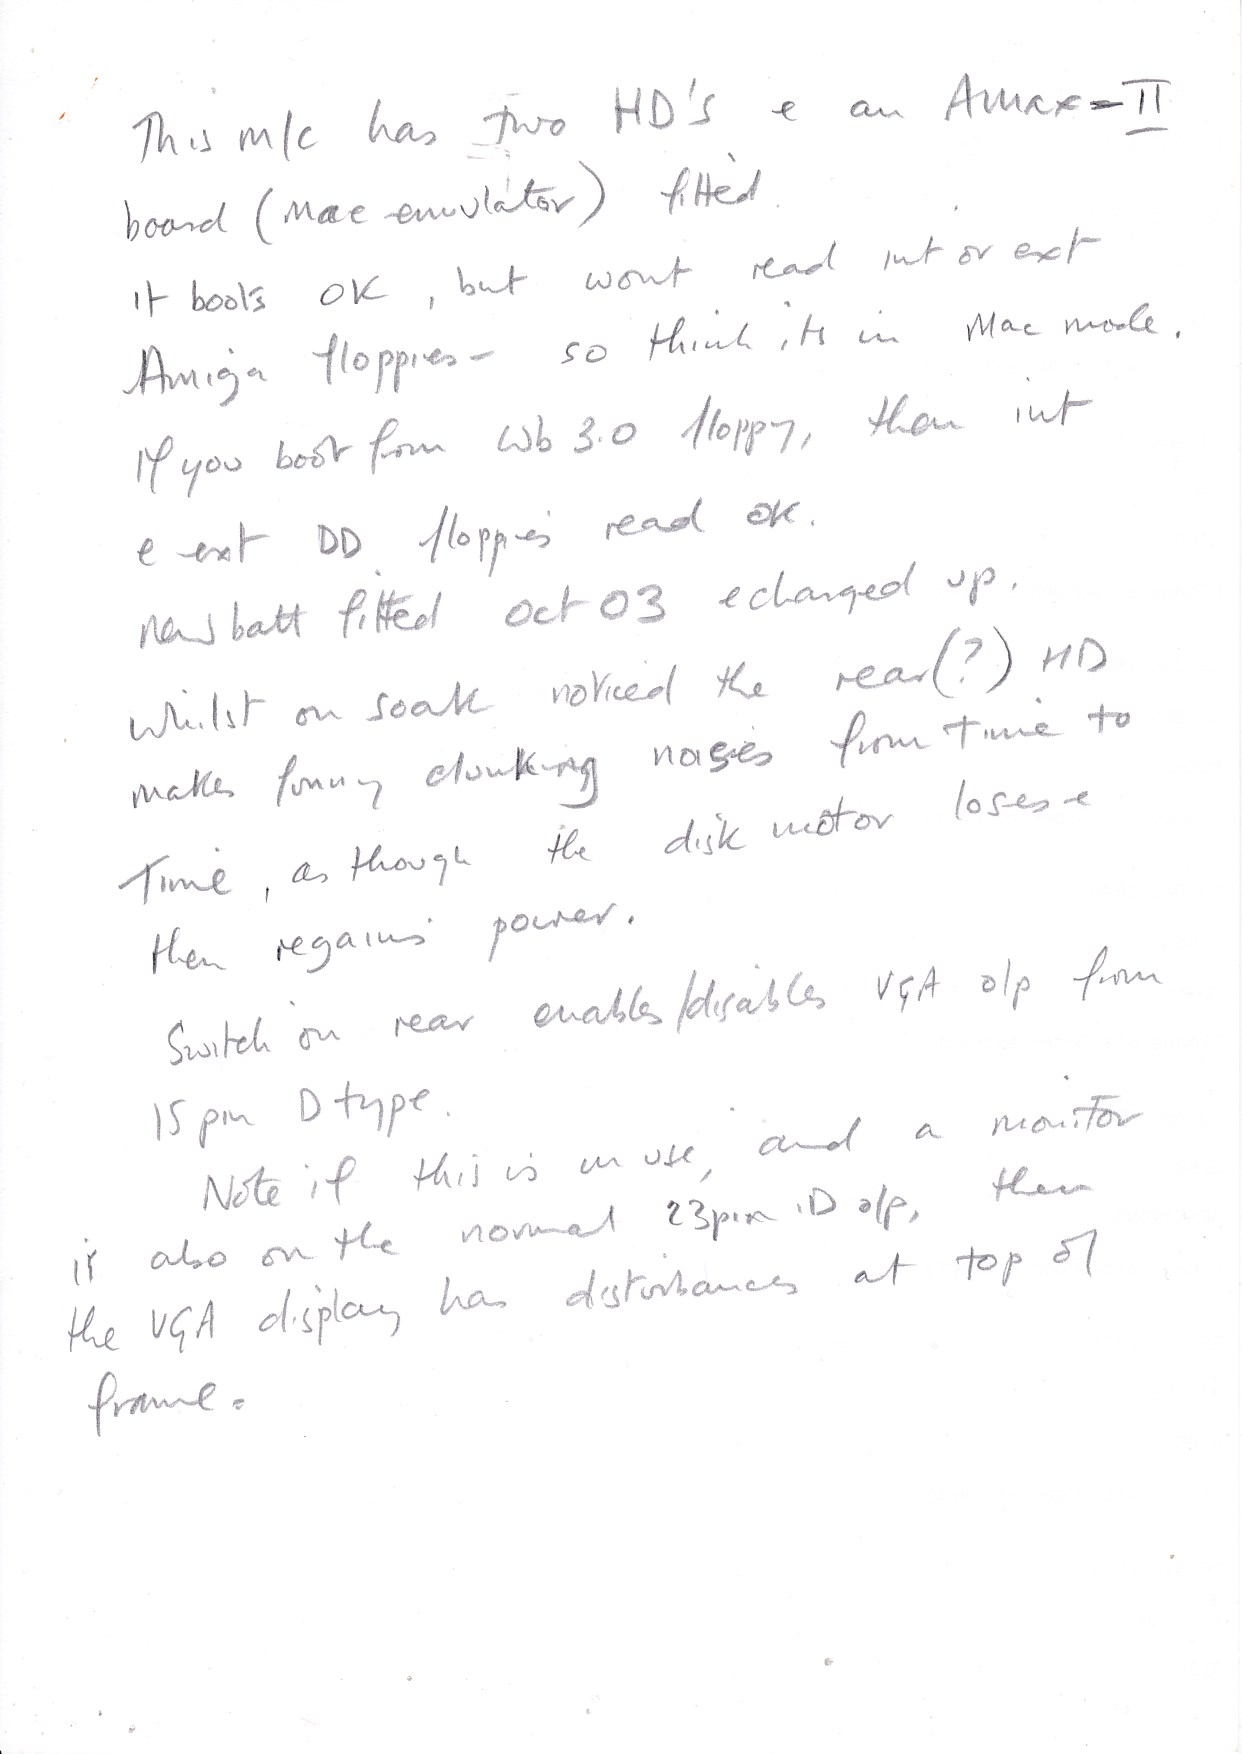 This m/c has two HD's e an AMAX=II
board (Mac emulator) fitted.
it boots OK, but wont read int or ext
Amiga floppies - so think its in Mac mode.
If you boot from Wb 3.0 floppy, then int
e ext DD floppies read ok.
new batt fitted oct 03 e charged up.
whilst on soak noticed the rear(?) HD
makes funny clunking noises from time to
time, as though the disk motor loses e
then regains power.
Switch on rear enables/disables VGA o/p from
15 pin D type.
Note if this is in use, and a monitor
is also on the normal 23pin D o/p, then
the VGA display has disturbances at top of
frame.